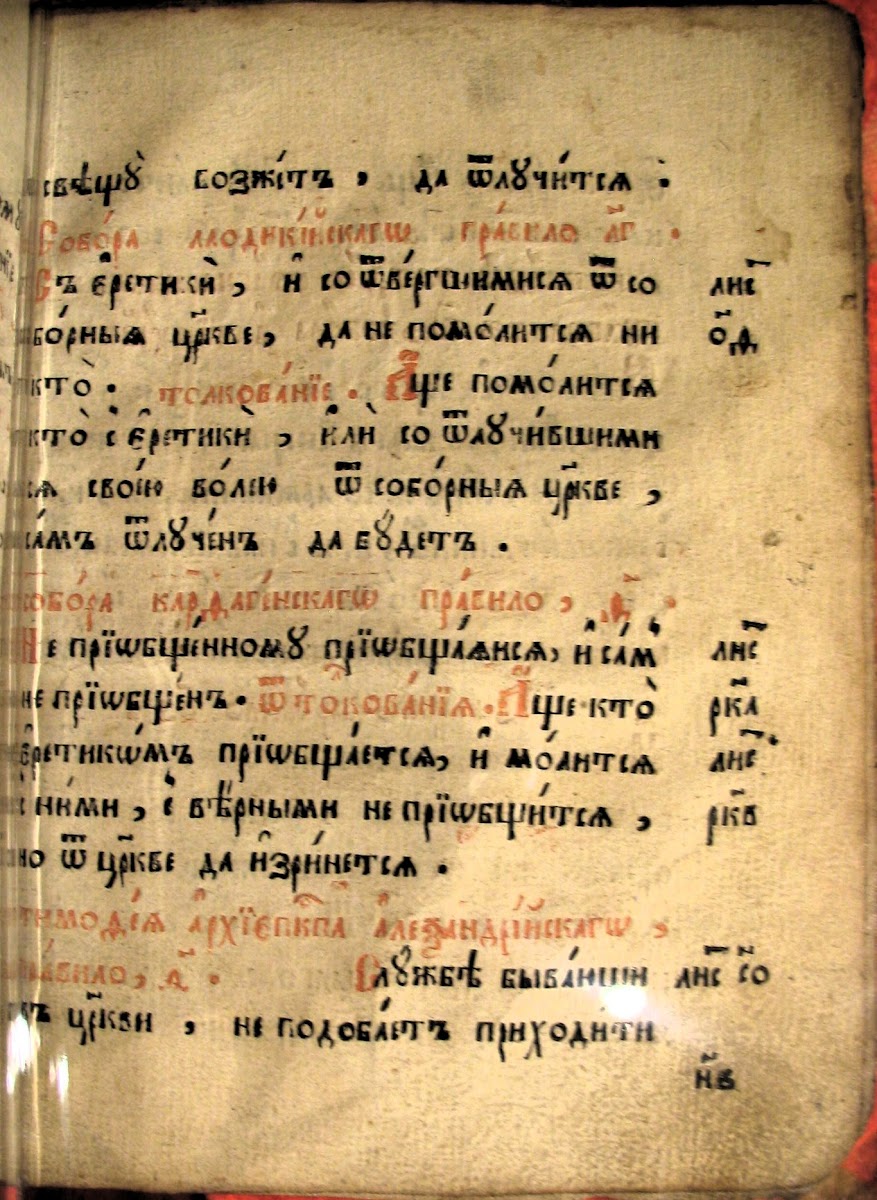 свѣщꙋ̀ возжи́гъ, да ѿлꙋчи́тсѧ.
Собо́ра лаодикі́йскагѡ пра́вило л҃г.
Съ є҆ретики̑, и҆ со ѿве́ргшимисѧ ѿ со лис
бо́рныѧ цр҃кве, да не помо́литсѧ ни о҃д
кто̀. толкова́нїе. А҆́ще помо́литсѧ
кто̀ с є҆ретики̑, и҆лѝ со ѿлꙋчи́вшими
сѧ свое́ю во́лею ѿ собо́рныѧ цр҃кве,
са́мъ ѿлꙋче́нъ да бꙋ́детъ.
собо́ра карѳаге́нскагѡ пра́вило, ѳ҃.
Не прїѡбще́нномꙋ прїѡбща́ѧисѧ, и҆ са́м лис
не прїѡбще́нъ. ѿ токова́нїѧ. А҆́ще кто̀ рк҃а
є҆ретикѡ́мъ прїѡбща́етсѧ, и҆ мо́литсѧ лис
с ни́ми, с вѣ́рными не прїѡбщи́тсѧ, рк҃в
но ѿ цр҃кве да и҆зри́нетсѧ.
тимоѳе́ѧ а҆рхїєпⷭ҇кпа а҆леѯандрі́йскагѡ,
пра́вило, ѳ҃. Слꙋ́жбѣ быва́ющи лис со
въ цр҃кви, не подоба́етъ приходи́ти
н҃в